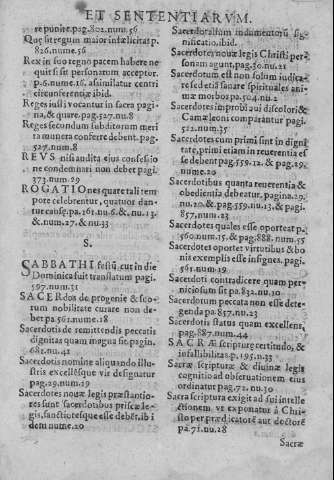 ET SENTENTIARVM.
re punire.pag.802.num.56
Quę sit regum maior infęlicitas p.
826.nume.56
Rex in suo regno pacem habere ne
quit si sit personarum acceptor.
p.6.nume.16. assimilatur centri
circunferentię ibid.
Reges iusti vocantur in sacra pagi
na, & quare. pag.527.nu.8
Reges secundum subditorum meri
ta munera conferre debent. pag.
527.nu.8
REVS nisi audita eius confessio
ne condemnari non debet pagi.
373.num.29
ROGATIOnes quare tali tem
pore celebrentur, quatuor dan-
tur causę. pa.161.nu.6. &. nu.13.
&.num.27. & nu.33
S.
SABBATHI festū, cur in die
Dominica fuit translatum pagi.
597.num.31
SACERdos de progenie & suo-
rum nobilitate curare non de-
bet pa.561.nume.18
Sacerdotis de remittendis peccatis
dignitas quam magna sit. pagin.
681.nu.41
Sacerdotis nomine aliquando illu-
stris excellēsque vir designatur
pag.29.num.19
Sacerdotes nouæ legis præstantio-
res sunt sacerdotibus priscæ le-
gis, sanctioresque esse debēt. ib i
dem nume.20
Sacerdotalium indumentorū sig-
nificatio. ibid.
Sacerdotes nouæ legis Christi per-
sonam agunt. pag.30.nu.21
Sacerdotum est non solum iudica-
re, sed etiā sanare spirituales ani-
mæ morbos pa.504.nu.2
Sacerdotes improbi aui discolori &
Camæleoni comparantur pagi.
512.num.35
Sacerdotes cum primi sint in digni
tate, primi etiam in reuerentia es
se debent pag.559.12. & pag.29.
nume.20
Sacerdotibus quanta reuerentia &
obedientia debeatur. pagina.29.
nu.20.& pag.559.nu.13. & pagi.
857.num.23
Sacerdotes quales esse oporteat p.
560.num.15. & pag.888.num.55
Sacerdotes oportet virtutibus & bo
nis exemplis esse insignes. pagi.
561.num.19
Sacerdoti contradicere quam per-
niciosum sit pa.831.nu.30
Sacerdotum peccata non esse dete-
genda pa.857.num.23
Sacerdotis status quam excellens.
pag.887.num.44
SACRÆ scripturę certitudo, &
infallibilitas. p.195.n.33
Sacræ scripturæ & diuinæ legis
cognitio ad obseruationem eius
ordinatur pag.72.nu.30
Sacra scriptura exigit ad sui intelle
ctionem vt exponatur à Chri-
sto per prędicatorē aut doctorē
pa.71.nu.28
Sacræ